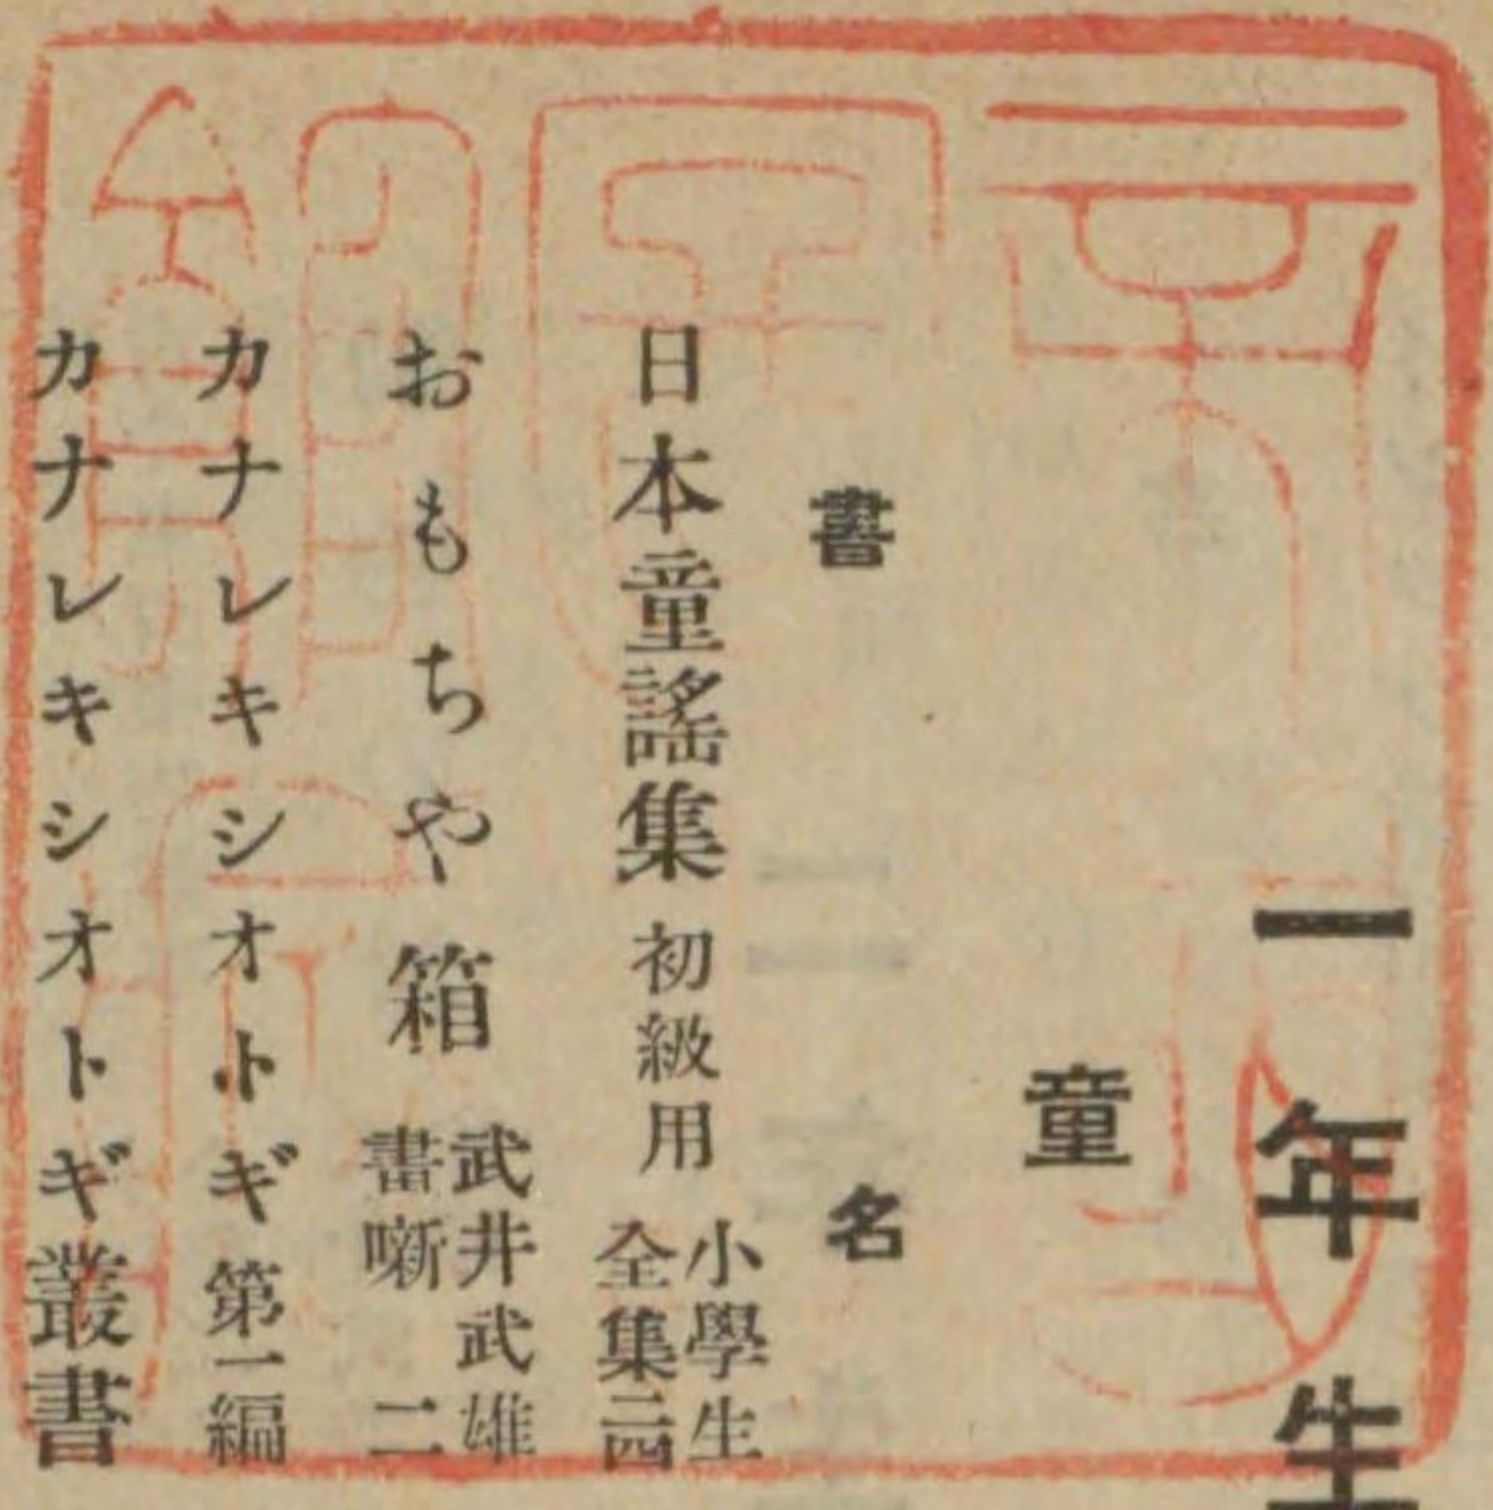 一年生
童
書名
日本童謠集 初級用 小學生全集二四
おもちや箱 武井武雄畫噺二
カナレキシオトギ 第一編
カナレキシオトギ叢書